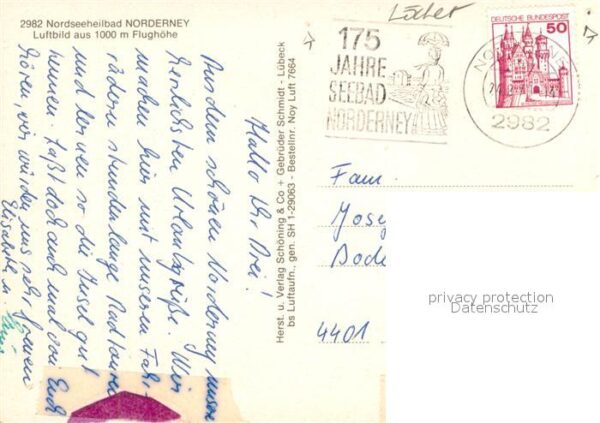 2982 Nordseeheilbad NORDERNEY
Luftbild aus 1000 m Flughöhe
Hallo Ihr Drei!
Aus dem schönen Norderney unsere
herzlichsten Urlaubsgrüße. Wir
machen hier mit unseren Fahr-
rädern stundenlange Radtouren
und lernen so die Insel gut
kennen. Laßt doch auch mal von Euch
hören, wir würden uns sehr freuen
Elisabeth u.
Herst. u. Verlag Schöning & Co + Gebrüder Schmidt - Lübeck
bs Luftaufn., gen. SH 1-29063 - Bestellnr. Noy Luft 7664
175
JAHRE
SEEBAD
NORDERNEY
DEUTSCHE BUNDESPOST
50
2982
Fam.
Jose
Bode
4401
privacy protection
Datenschutz